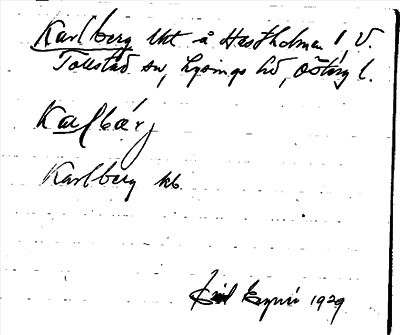 Karlberg lht å Hästholmen 1, V.
Tollstad sn, Lysings hd, Östergl.
Karlbärj
Karlberg kb.
1929